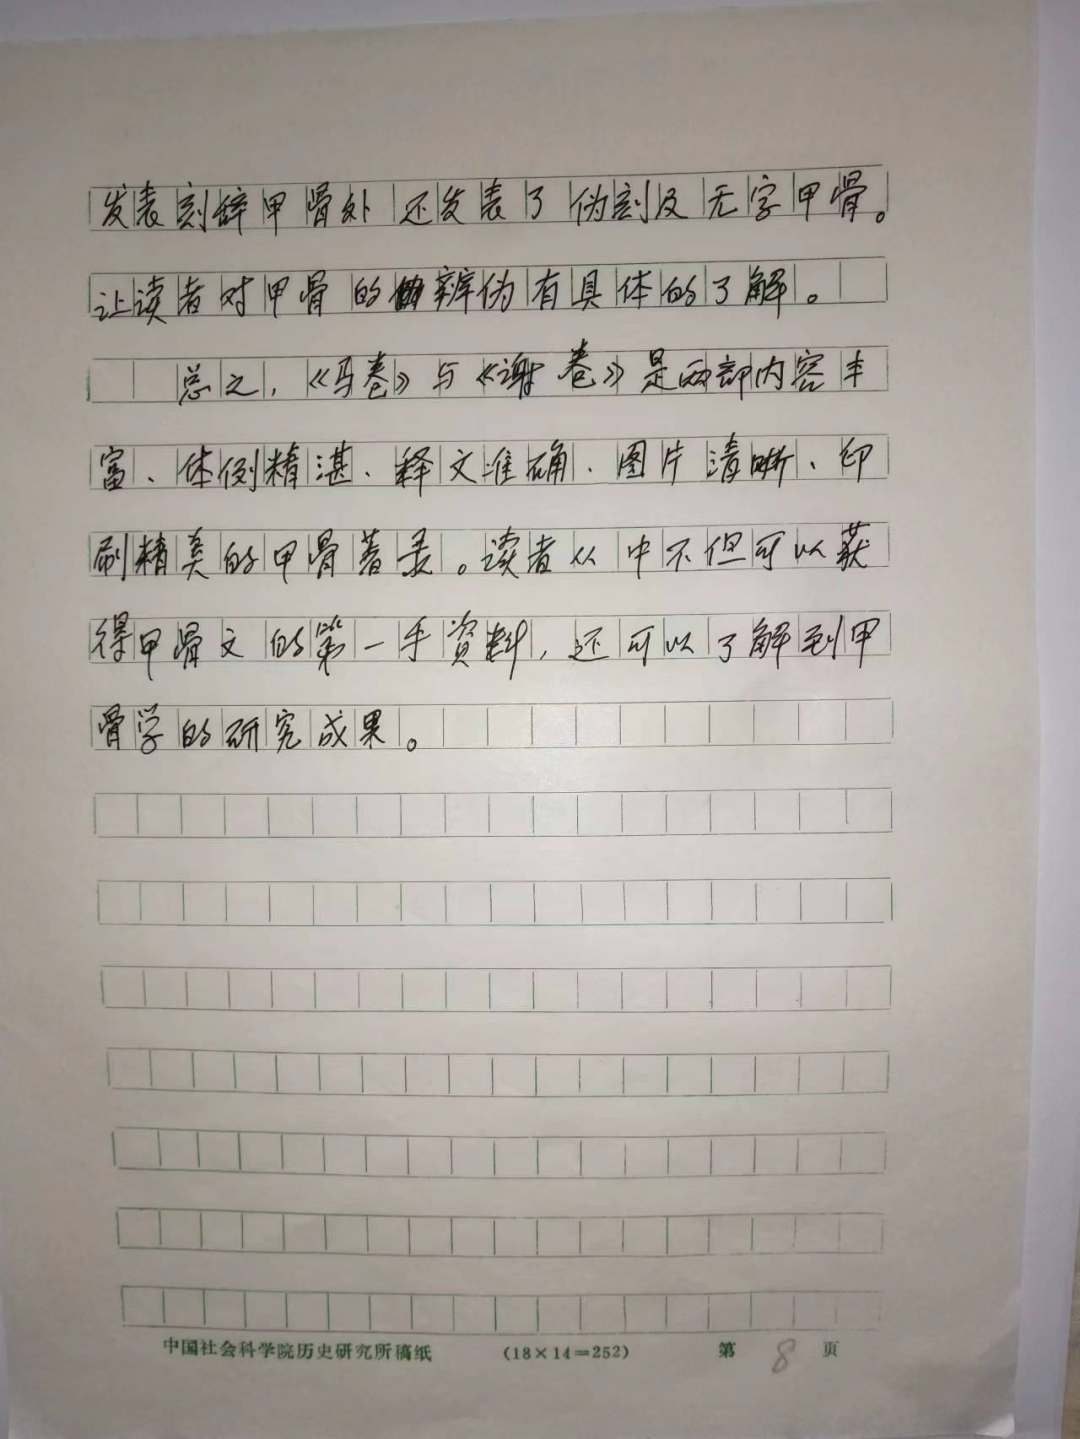 发表刻辞甲骨处还发表了伪刻及无字甲骨。
让读者对甲骨的辨伪有具体的了解。
总之,《马卷》与《谢卷》是两部内容丰
富、体例精湛、释文准确、图片清晰、印
刷精美的甲骨著录。读者从中不但可以获
得甲骨文的第一手资料,还可以了解到甲
骨学的研究成果。
中国社会科学院历史研究所稿纸 (18×14=252) 第 8 页